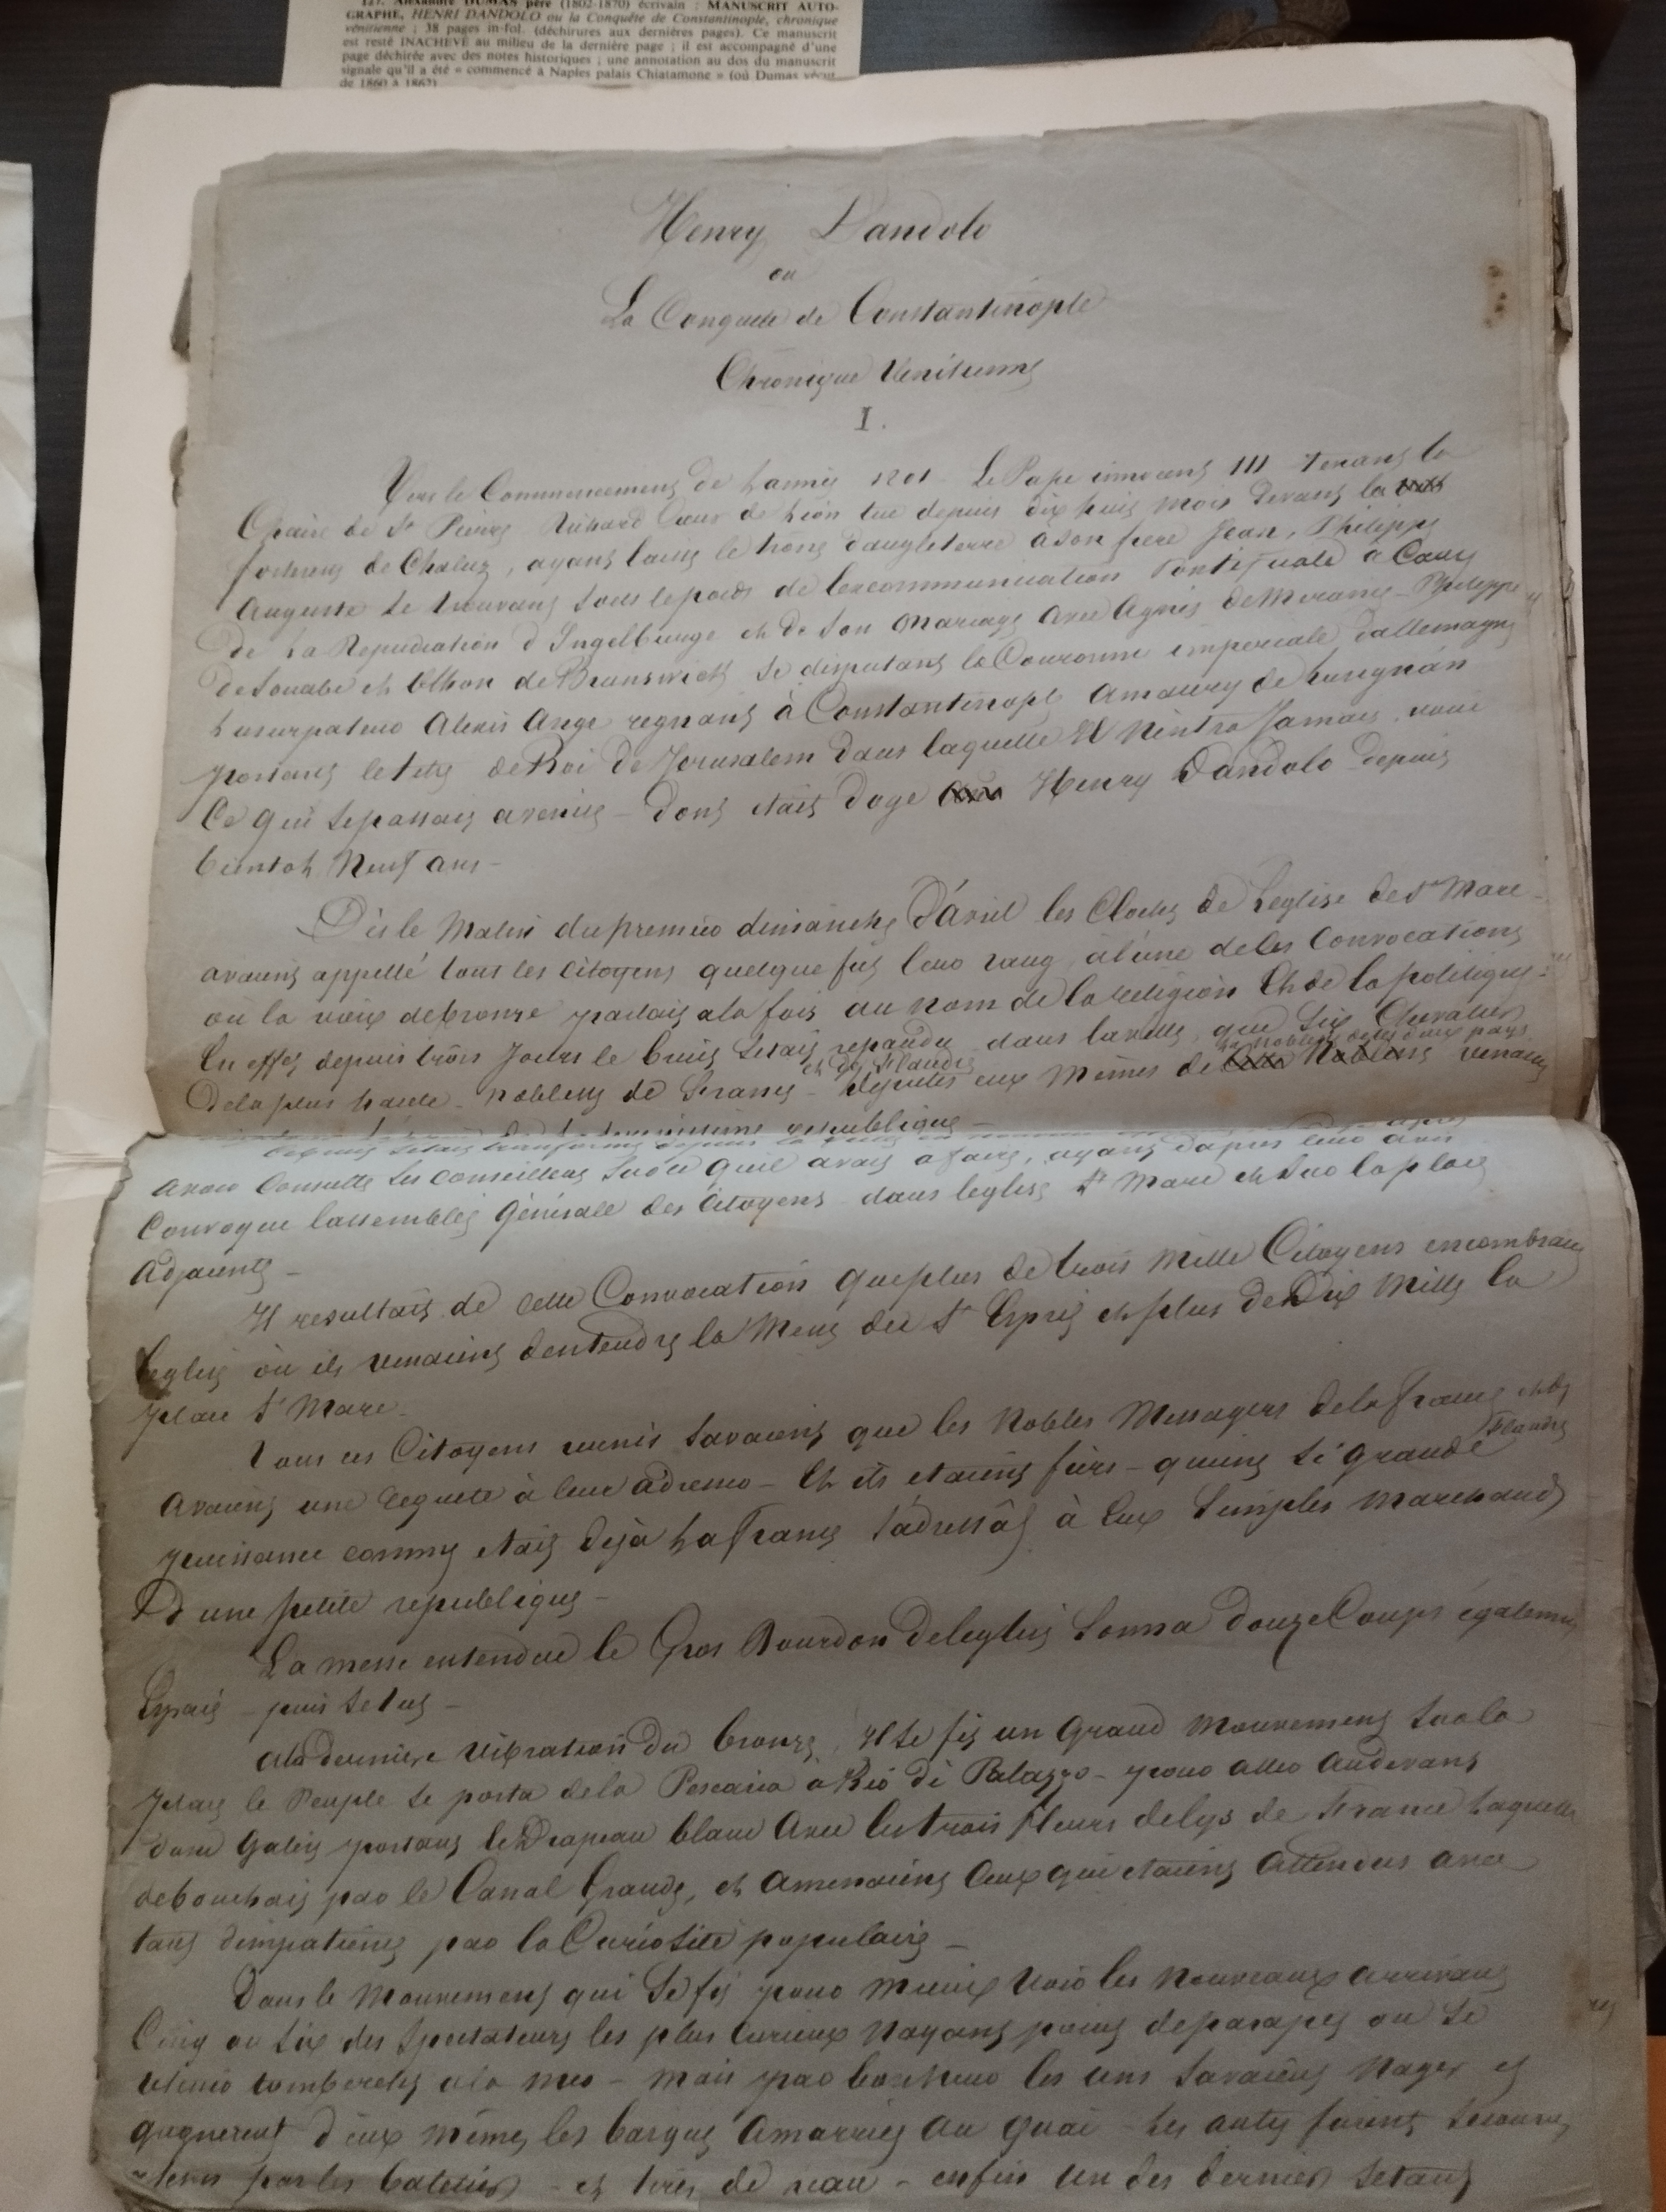 127. Alexandre DUMAS père (1802-1870) écrivain ; MANUSCRIT AUTO-
GRAPHE, HENRI DANDOLO ou la Conquête de Constantinople, chronique
vénitienne ; 38 pages in-fol. (déchirures aux dernières pages). Ce manuscrit
est resté INACHEVÉ au milieu de la dernière page ; il est accompagné d'une
page déchirée avec des notes historiques ; une annotation au dos du manuscrit
signale qu'il a été « commencé à Naples palais Chiatamone » (où Dumas vécut
de 1860 à 1862)
Henry Dandolo
ou
La Conquete de Constantinople
Chronique Venitienne
I.
Vers le Commencement de Lannée 1201 - Le Pape innocent III tenant la
Chaire de St Pierre Richard Cœur de Lion tué depuis dix huit mois devant la
forteresse de Chaluz, ayant laissé le trone dangleterre a son frere Jean, Philippe
Auguste se trouvant sous le poids de lexcommunication Pontificale à Cause
de La Repudiation d'Ingelburge et de son Mariage Avec Agnès de Meranie - Philippe
de Souabe et Othon de Brunswick se disputant la Couronne imperiale dallemagne
Lusurpateur Alexis Ange regnant à Constantinople Amaury de Lusignan
portant le titre de Roi de Jerusalem dans laquelle Il n'entra Jamais, voici
Ce qui se passait a venise - dont etait doge Henry Dandolo depuis
bientot Neuf ans -
Dès le Matin du premier dimanche d'avril les Cloches de Leglise de St Marc -
avaient appellé tous les citoyens quelque fut leur rang, à lune de ces Convocations
où la voix de bronze parlait a la fois au nom de la religion Et de la politique -
En effet depuis trois Jours le bruit setait repandu dans la ville, que Six Chevaliers
et de Flandre
la Noblesse de ces deux pays
De la plus haute - noblesse de France - deputés eux memes de Noblesse venaient
republique -
avoir Consulté ses conseillers sur ce quil avait a faire, ayant dapres leur avis
Convoqué lassemblée Générale des Citoyens dans leglise St Marc et sur la place
Adjacente -
Il resultait de cette Convocation que plus de trois Mille Citoyens encombraient
leglise où ils venaient dentendre la Messe du St Esprit et plus de Dix Mille la
place St Marc -
Tous ces Citoyens reunis savaient que les Nobles Messagers de la France et de
Flandre
Avaient une requete à leur adresser - Et ils etaient fiers - quune si grande
puissance comme etait Déjà La France s'adressât à Eux Simples Marchands
D'une petite republique -
La messe entendue le Gros Bourdon de leglise Sonna douze Coups également
Espacés - puis se tut -
A la derniere vibration du bronze, Il se fit un Grand Mouvement sur la
place le Peuple se porta de la Pescaria a Rio di Palazzo - pour aller Audevant
dune Galere portant le Drapeau blanc Avec les trois fleurs de lys de France Laquelle
debouchait par le Canal Grande, et Amenaient Ceux qui etaient Attendus avec
tant dimpatience par la Curiosité populaire -
Dans le Mouvement qui Se fit pour mieux Voir les nouveaux arrivants
Cinq ou six des Spectateurs les plus Curieux Nayant point de parapet ou se
retenir tomberent a la mer - mais par bonheur les uns savaient Nager et
gagnerent d'eux mêmes les barques Amarrées Au quai - Les autres furent secourus
par les bateliers - et tirés de neau - enfin un des derniers setant